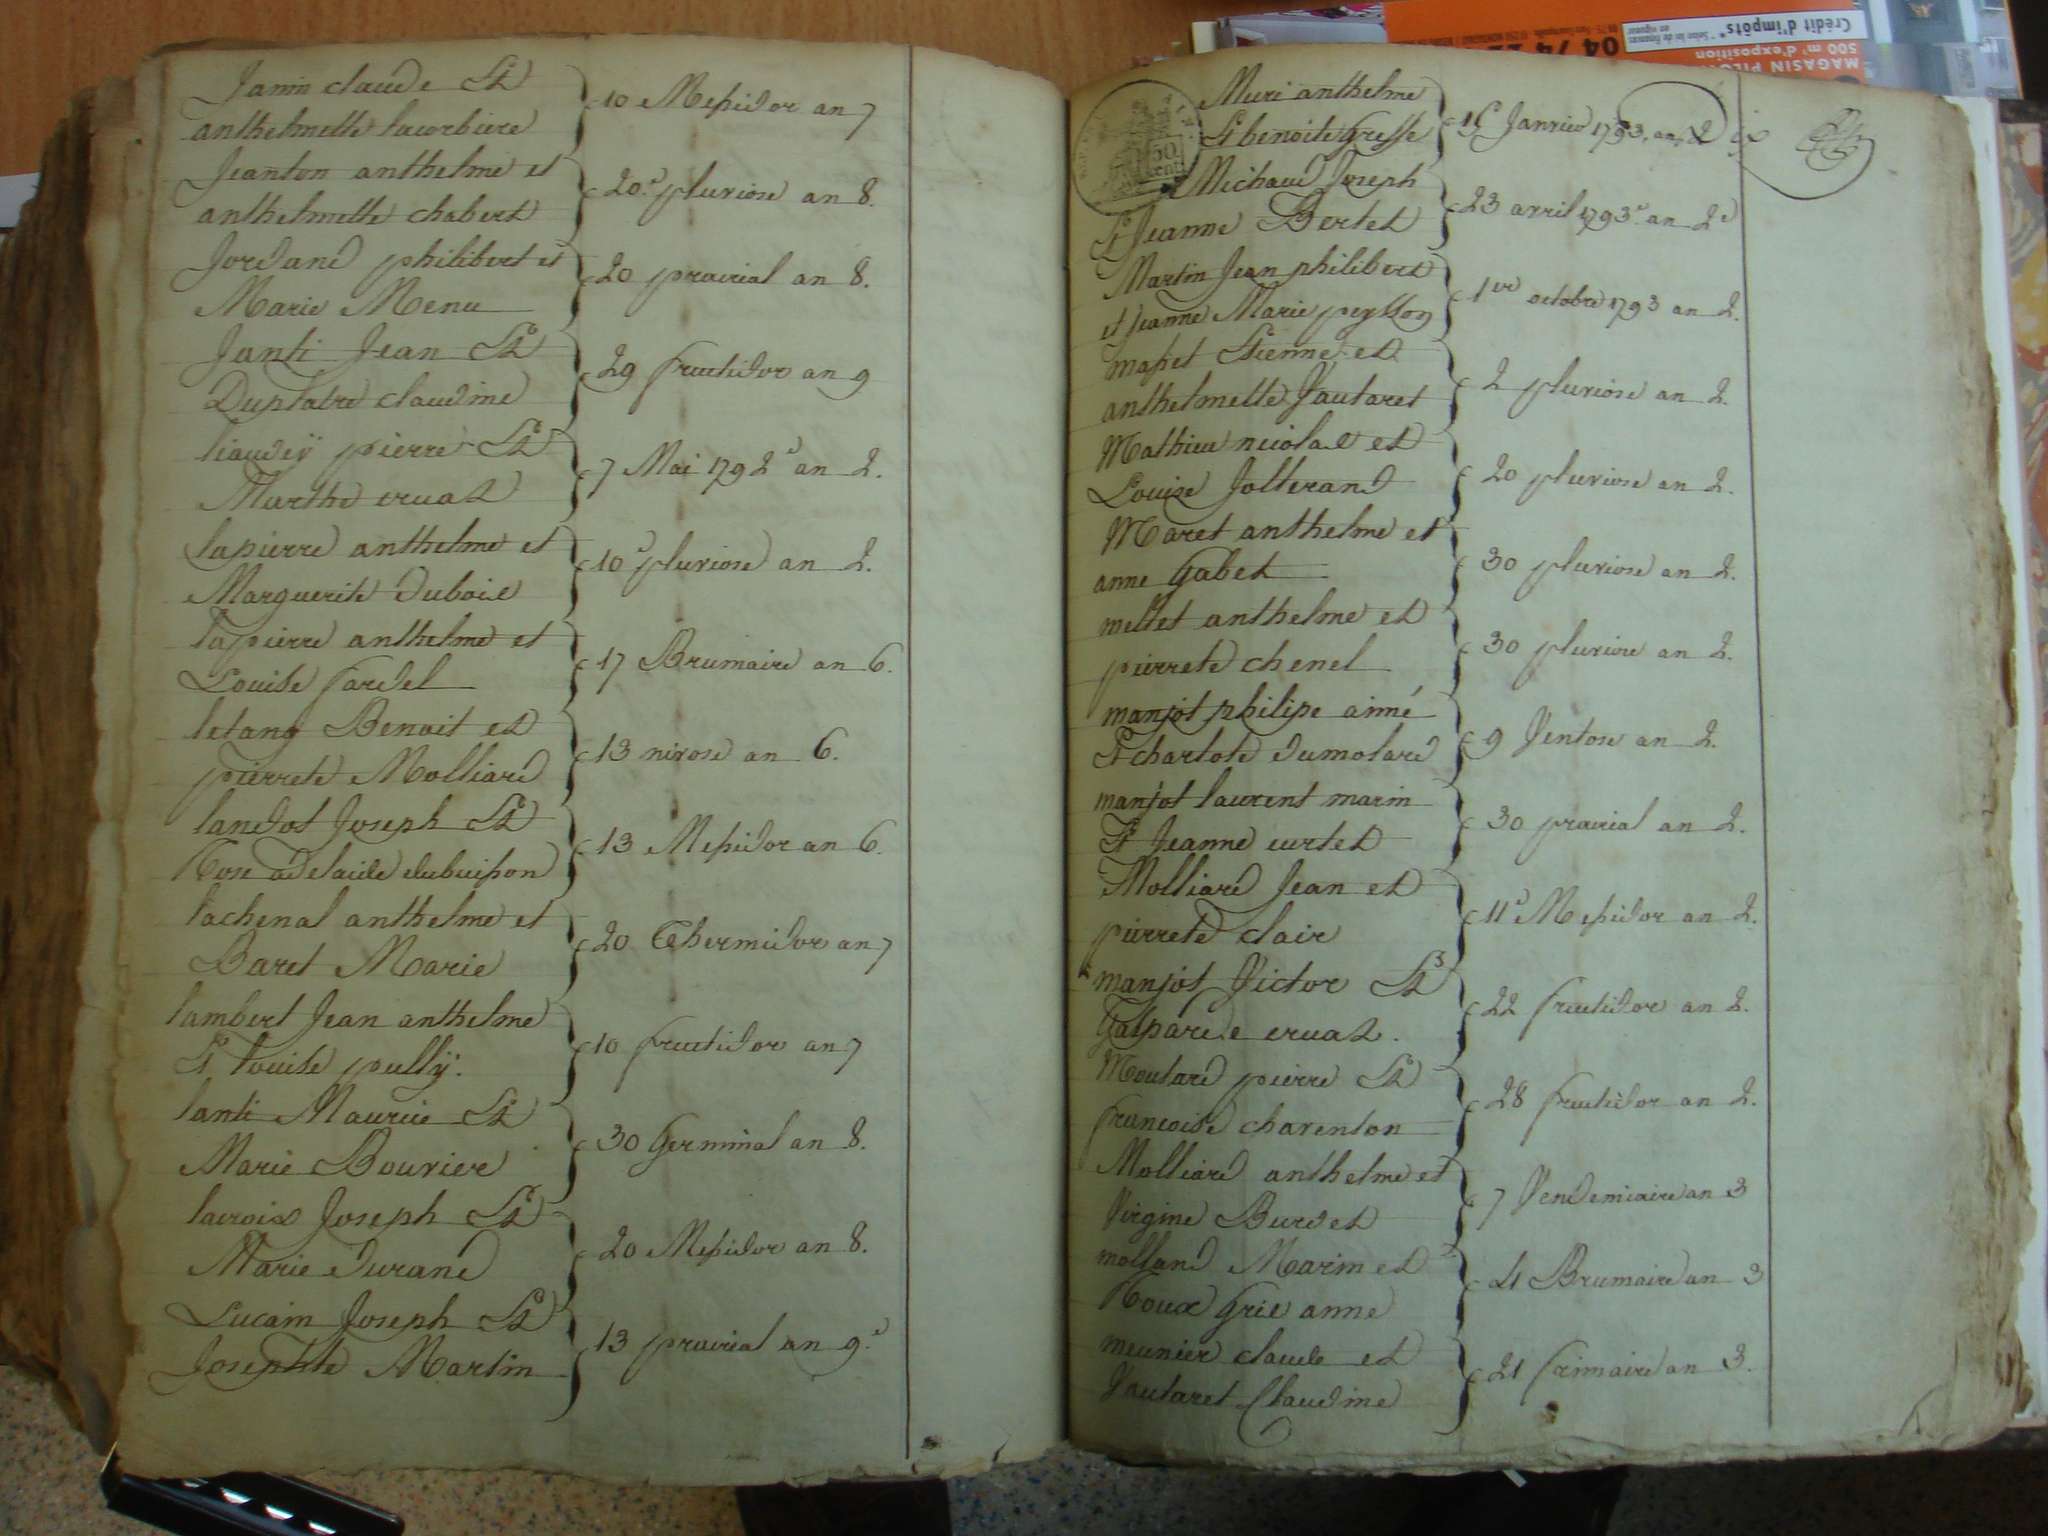 Janin claude Et
anthelmette lacorbiere
10 Messidor an 7
Jeanton anthelme et
anthelmette chabert
20.e pluviose an 8.
Jordand philibert et
Marie Menu
20 prairial an 8.
Janti Jean Et
Duplatre claudine
29 fructidor an 9
liaudÿ pierre Et
Marthe cruaz
7 Mai 1792 e an 2.
lapierre anthelme et
Marguerite dubois
10 e pluviose an 2.
lapierre anthelme et
Louise fardel
17 Brumaire an 6.
letang Benoit et
pierrete Molliard
13 nivose an 6.
landot Joseph Et
Rose adelaide dubuisson
13 Messidor an 6.
lachenal anthelme et
Baret Marie
20 Thermidor an 7
lambert Jean anthelme
Et louise pullÿ.
10 fructidor an 7
lanti Maurice Et
Marie Bouvier
30 Germinal an 8.
lacroix Joseph Et
Marie durand
20 Messidor an 8.
Lucain Joseph Et
Josephte Martin
13 prairial an 9.e
50
cent
Muri anthelme
Et benoite Gresse
15 Janvier 1793, an 2
Michaud Joseph
Et Jeanne Bertet
23 avril 1793 e an 2 e
Martin Jean philibert
et Jeanne Marie peysson
1er octobre 1793 an 2.
masset Etienne et
anthelmette Vautaret
2 pluviose an 2.
Mathieu nicolas et
Louise Jolterand
20 pluviose an 2.
Maret anthelme et
anne Gabet
30 pluviose an 2.
mettet anthelme et
pierrete chenel
30 pluviose an 2.
manjot philipe aimé
Et charlote dumolard
9 Ventose an 2.
manjot laurent marin
Et Jeanne curtet
30 prairial an 2.
Molliard Jean et
pierrete clair
11 e Messidor an 2.
manjot Victor Et
Gasparde cruaz.
22 fructidor an 2.
Moutard pierre Et
francoise charenton
28 fructidor an 2.
Molliard anthelme et
Virgine Burdet
7 Vendemiaire an 3
molland Marin et
Roux Grie anne
21 Brumaire an 3
meunier claude et
Vautaret Claudine
21 frimaire an 3.
Crédit d'impôts*
500 m² d'exposition
04 74